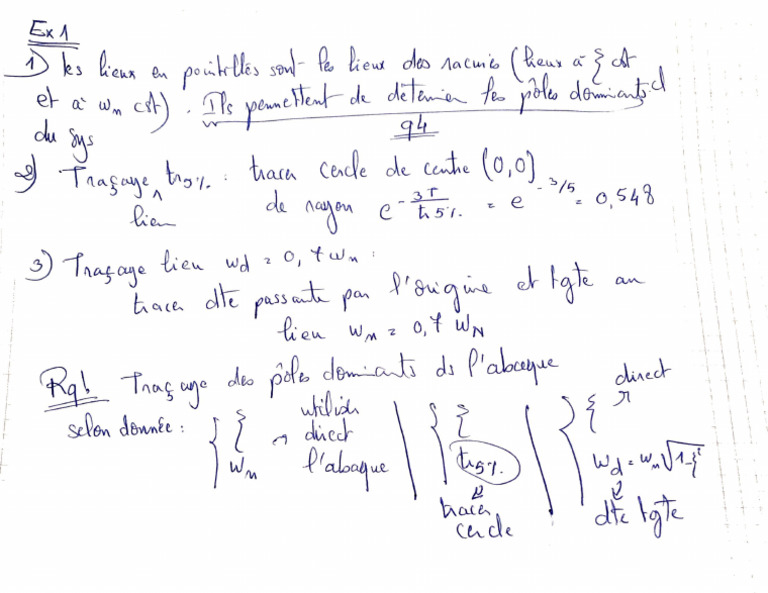 Ex 1
1) les lieux en pointillés sont les lieux des racines (lieux à ξ cst
et à ωn cst). Ils permettent de déterminer les pôles dominants
du sys
94
2) Traçage lieu tr5%: tracer cercle de centre (0,0)
de rayon e^{-3T/tr5%} = e^{-3/5} = 0,548
3) Traçage lieu ωd = 0,7 ωn :
tracer dte passante par l'origine et tgte au
lieu ωn = 0,7 ωN
Rq! Traçage des pôles dominants ds l'abaque
selon donnée: { ξ ωn → utilisa° direct l'abaque | { ξ tr5% ↓ tracer cercle | { ξ ↗ direct ωd = ωn√(1-ξ²) ↓ dte tgte